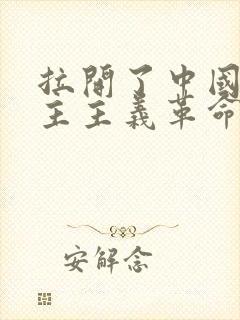 拉開了中國
主主義革命
安解念